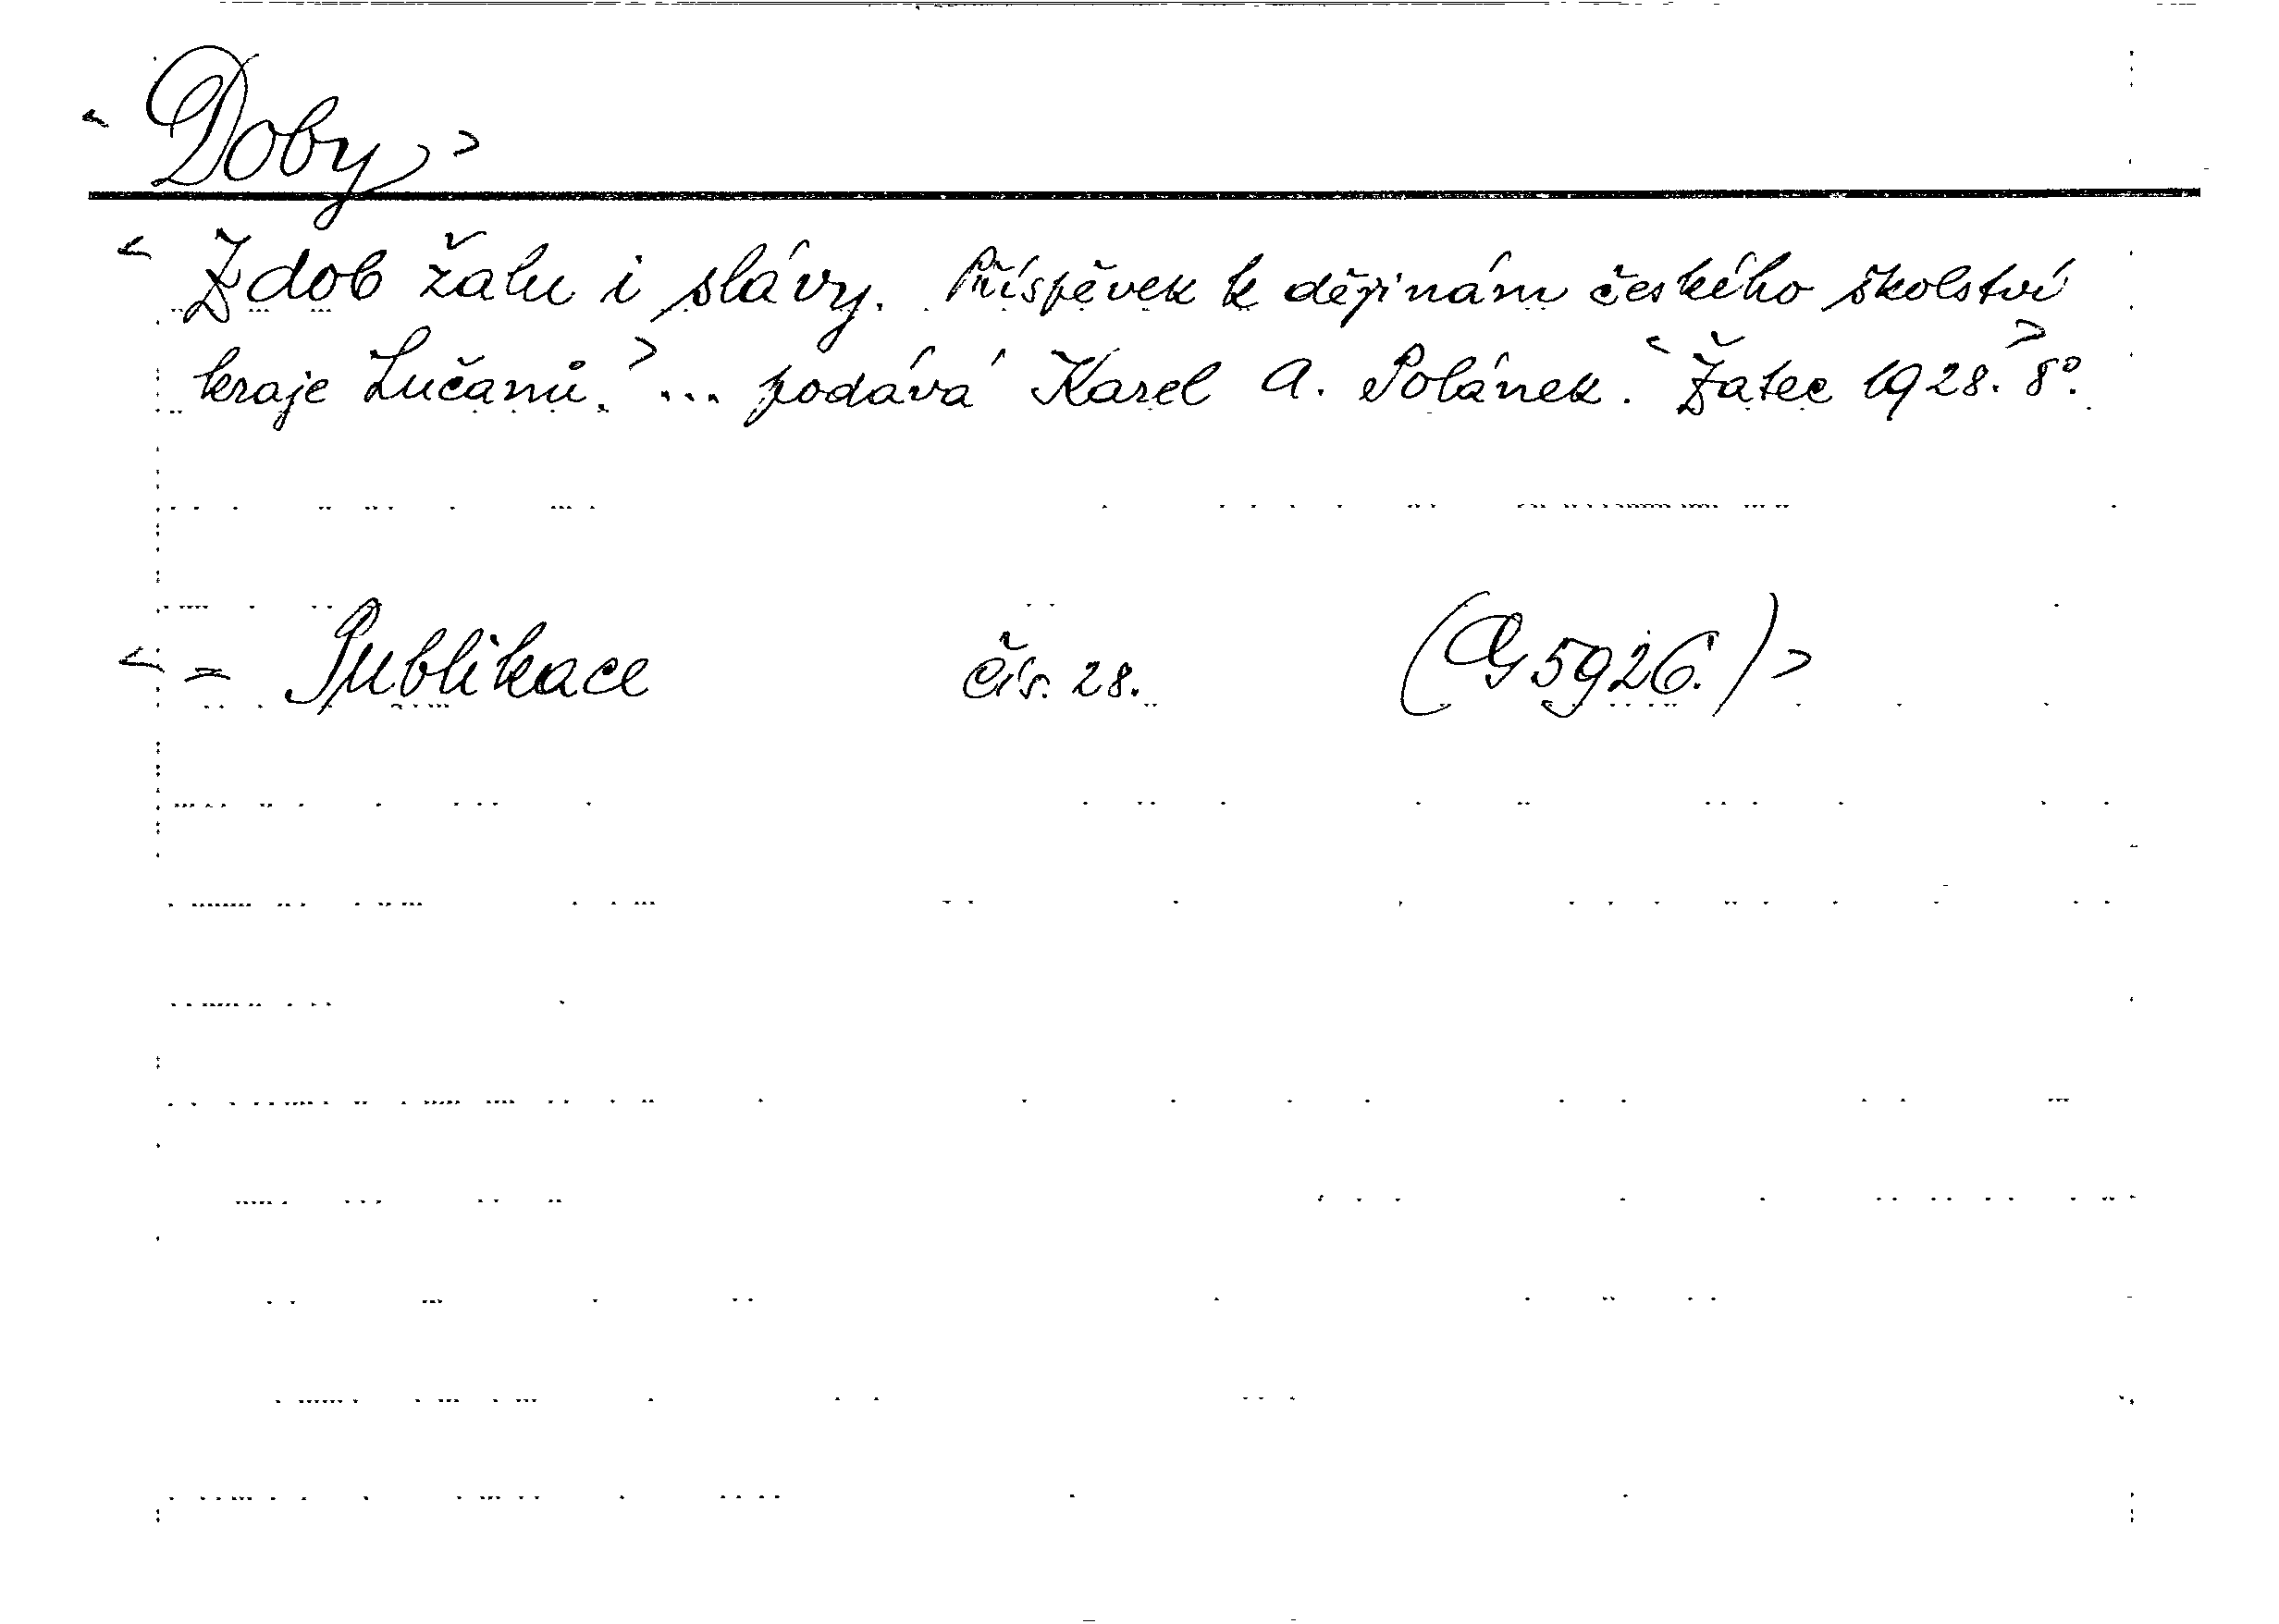 < Doby >
< Z dob žalu i slávy. Příspěvek k dějinám českého školství
kraje Lučanů. > ... podává Karel A. Polánek. < Žatec 1928. > 8°.
< = Publikace čís. 28. (Og 5926.) >